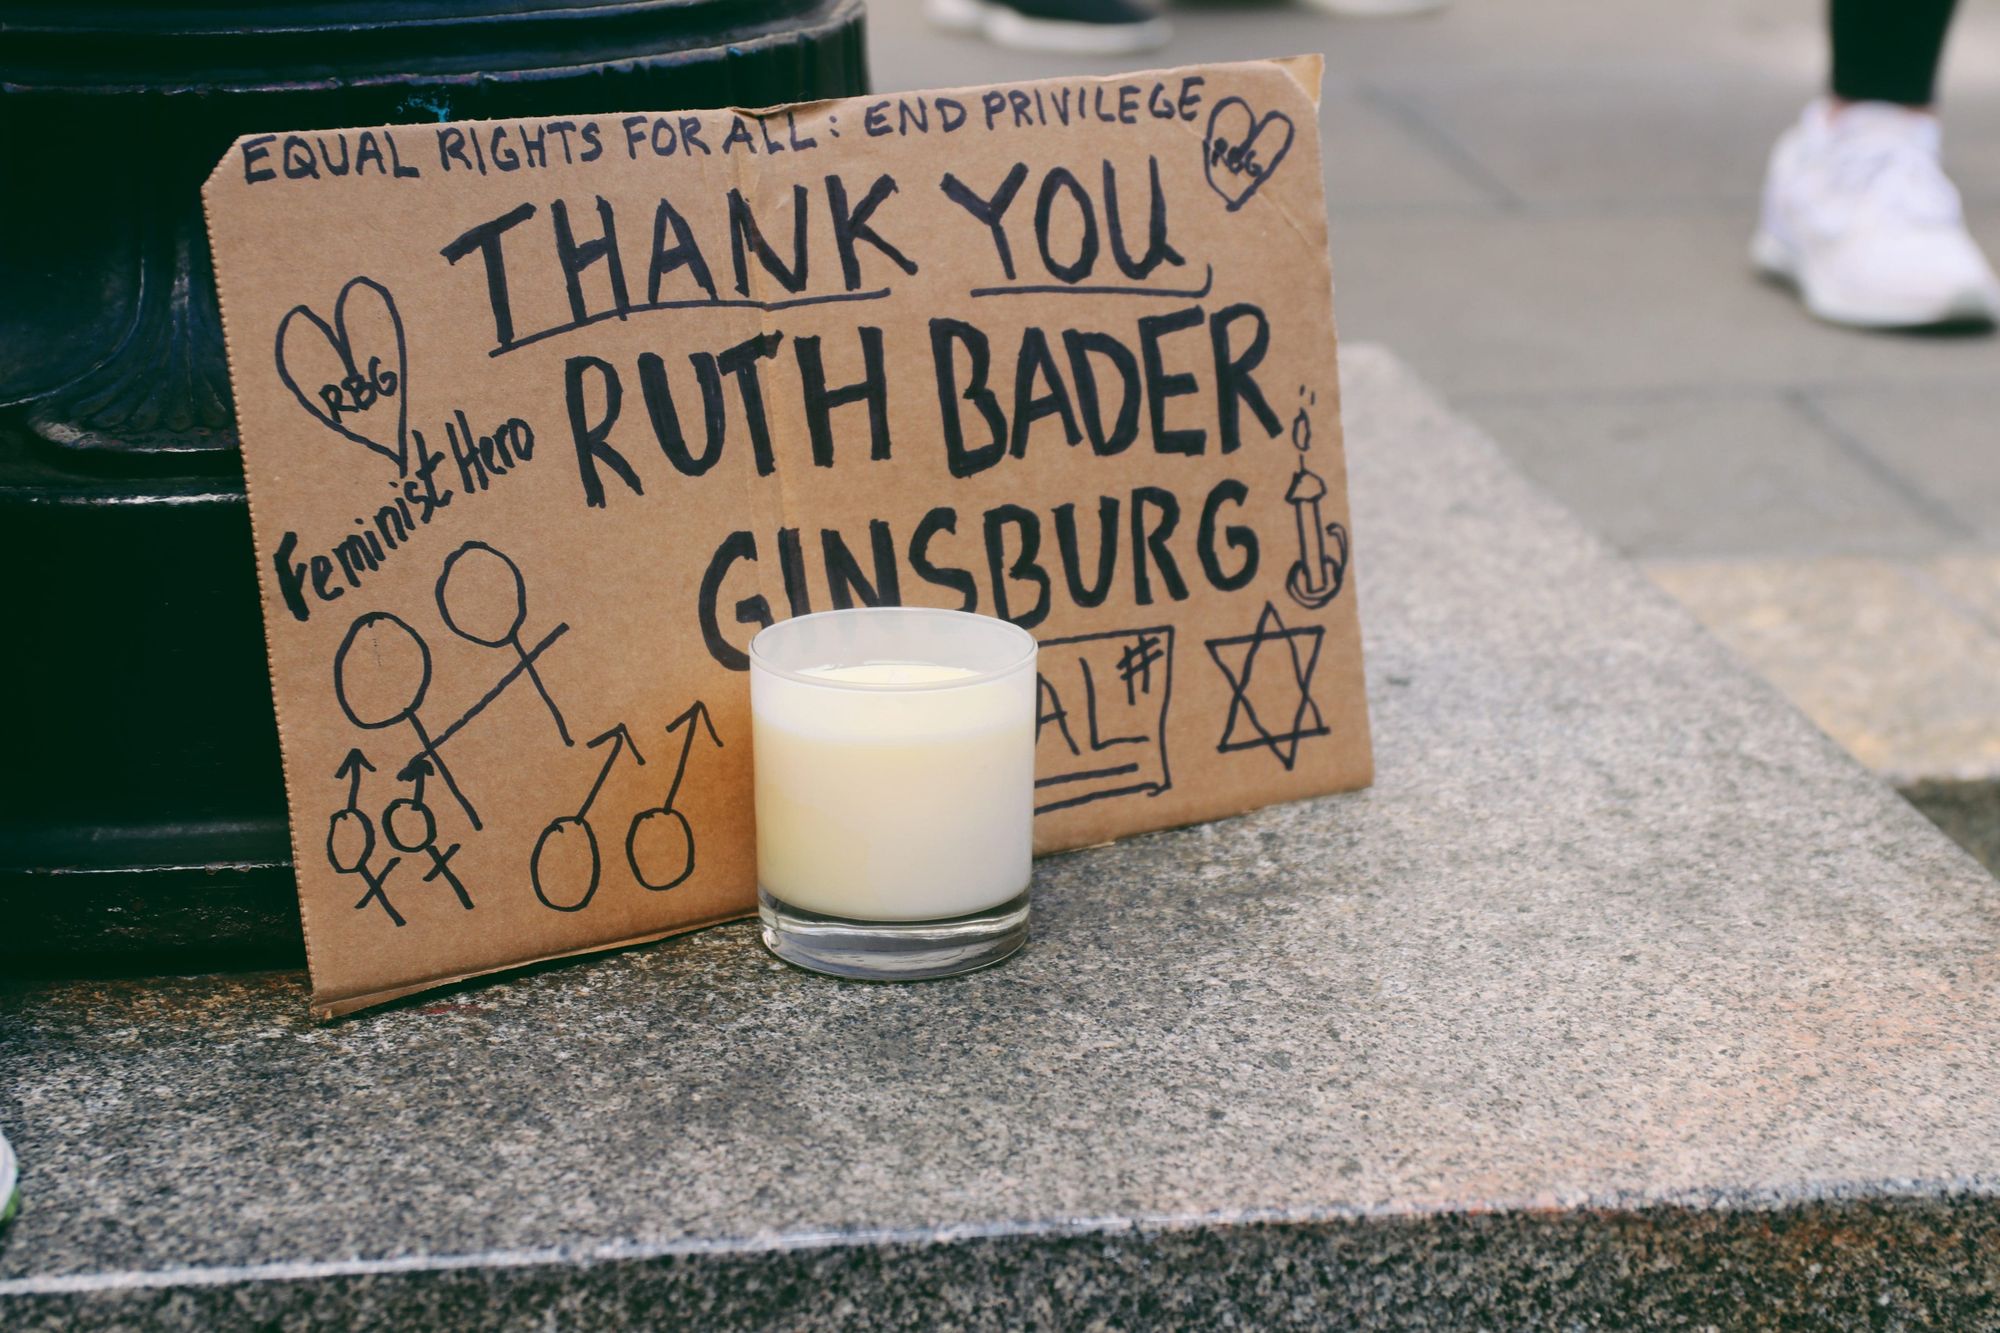 EQUAL RIGHTS FOR ALL: END PRIVILEGE
RBG
THANK YOU
RBG
RUTH BADER
Feminist Hero
GINSBURG
#